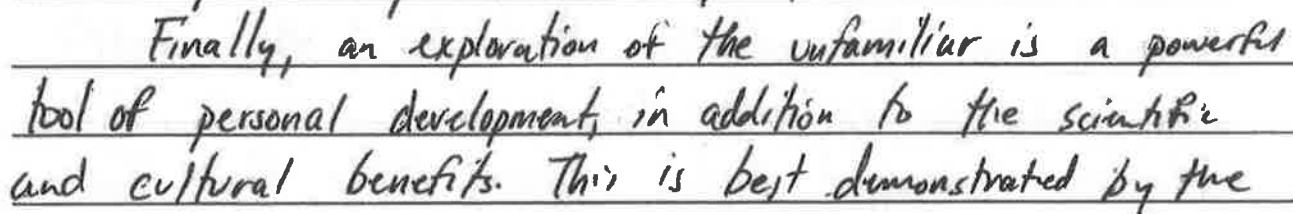 Finally, an exploration of the unfamiliar is a powerful
tool of personal development, in addition to the scientific
and cultural benefits. This is best demonstrated by the